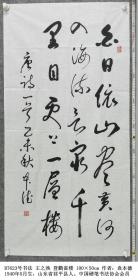 白日依山尽黄河
入海流欲穷千
里目更上一层楼
唐诗一首乙未秋本德
H7623号书法 王之涣 登鹳雀楼 180×50cm 作者：本德
1940年8月生，山东省邹平县人，中国硬笔书法协会会员